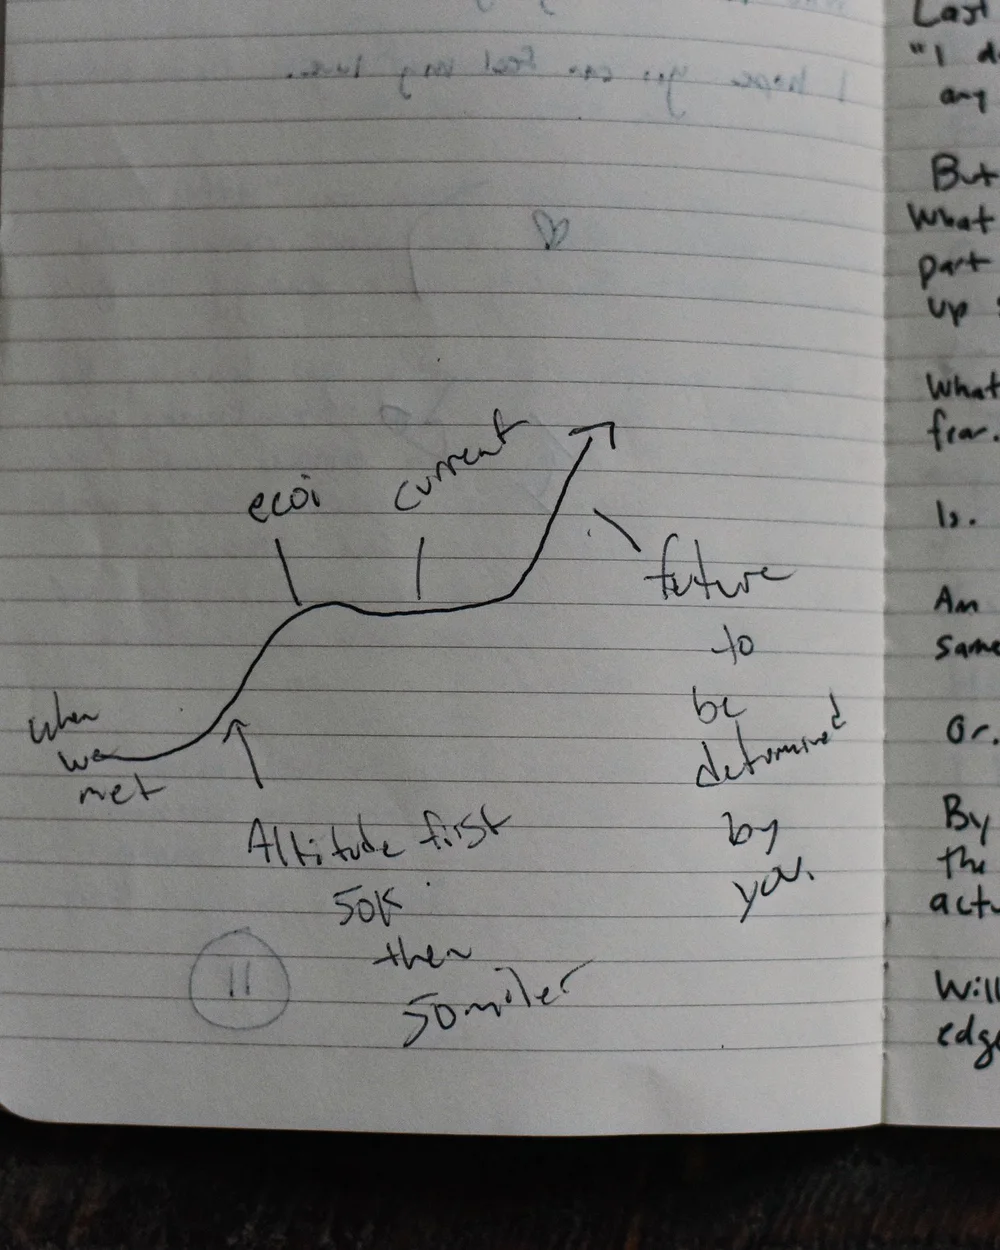 I hope you can feel my love.
ecoi
current
future
to
be
determined
by
you.
when
we
met
Altitude first
50K
then
50 miler
11
Last
"I d
any
But
What
part
up
What
fear.
Is.
An
same
Or.
By
the
actu
Will
edge